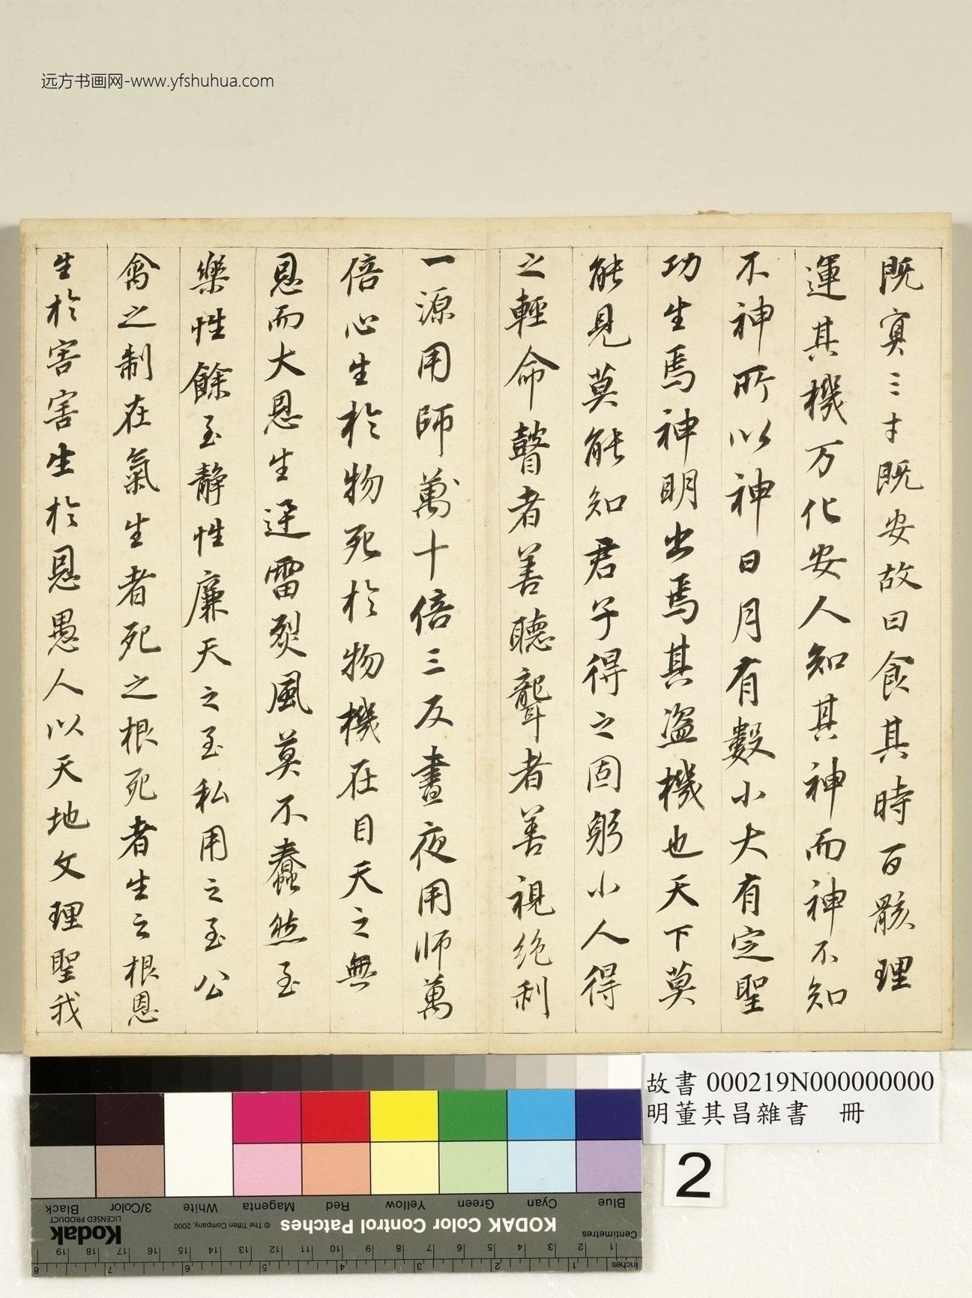 远方书画网-www.yfshuhua.com
既宜三才既安故曰食其時百骸理
運其機万化安人知其神而神不知
不神所以神日月有數小大有定聖
功生焉神明出焉其盗機也天下莫
能見莫能知君子得之固躬小人得
之輕命瞽者善聽聾者善視絶利
一源用師萬十倍三反晝夜用師萬
倍心生於物死於物機在目天之無
恩而大恩生迅雷烈風莫不蠢然至
樂性餘至静性廉天之至私用之至公
禽之制在氣生者死之根死者生之根恩
生於害害生於恩愚人以天地文理聖我
故書 000219N000000000
明董其昌雜書 冊
2
Blue Cyan Green Yellow Red Magenta White 3/Color Black
KODAK Color Control Patches
© The Tiffen Company, 2000
Kodak
LICENSED PRODUCT
Centimetres
1 2 3 4 5 6 7 8 9 10 11 12 13 14 15 16 17 18 19
Inches
1 2 3 4 5 6 7 8